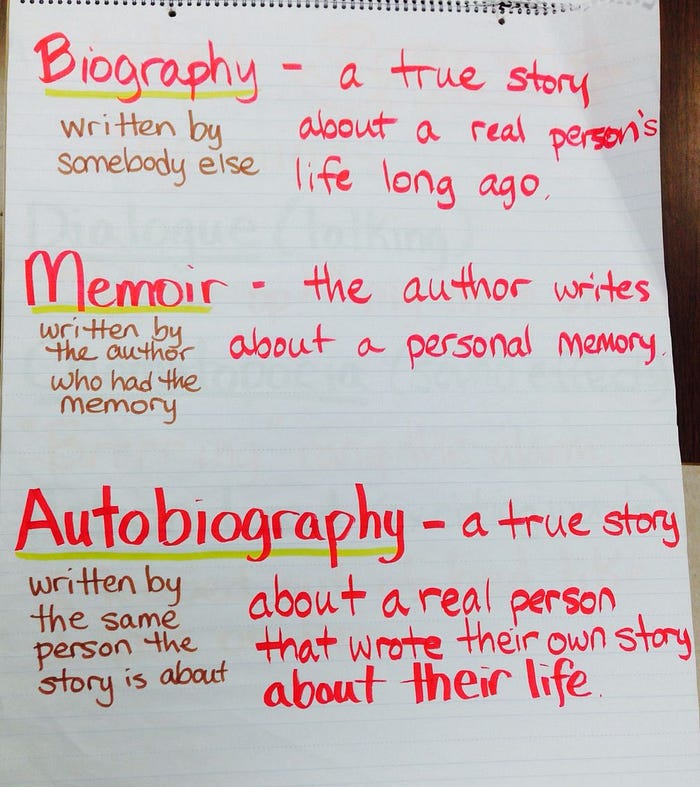 Biography - a true story
written by about a real person's
somebody else life long ago.
Memoir - the author writes
written by
the author about a personal memory.
who had the
memory
Autobiography - a true story
written by about a real person
the same that wrote their own story
person the about their life.
story is about
Dialogue (talking)